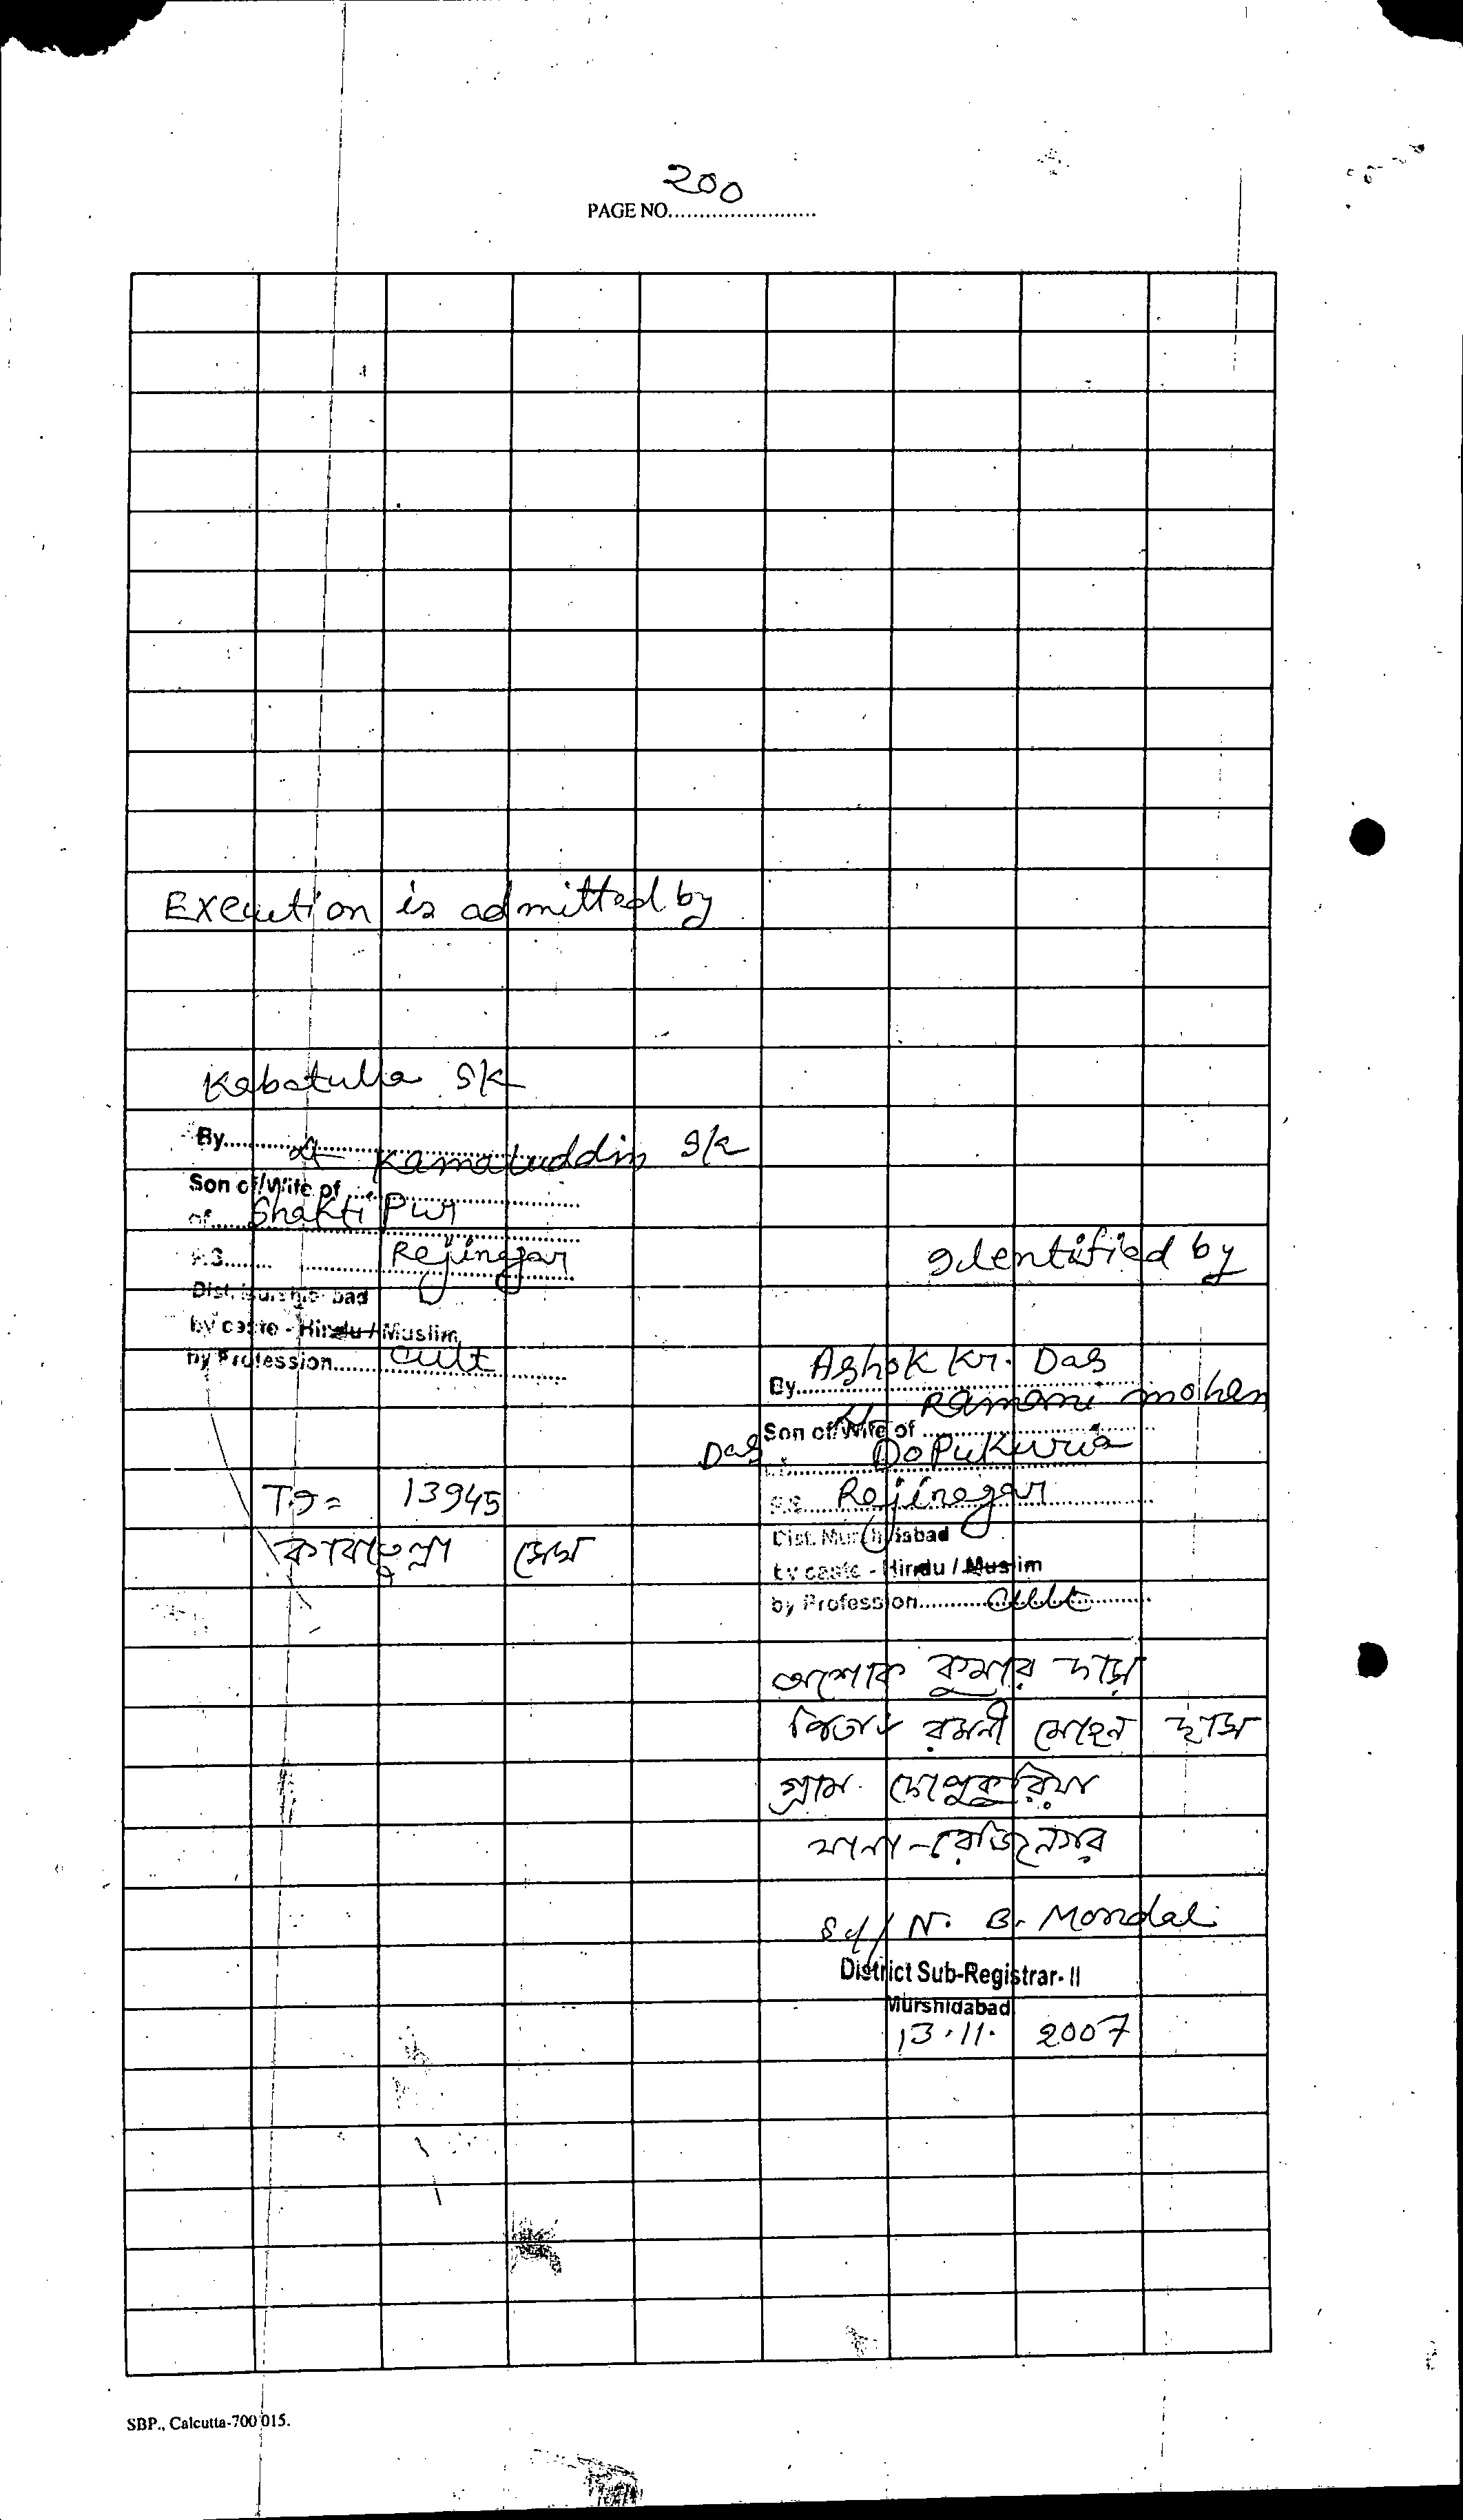 200
PAGE NO.........................
Execution is admitted by
Kabatulla Sk
By.....................
Lt Kamaluddin Sk
Son of/Wife of .....................
of...... Shakti Pur
P.S........ Rejinagar
Dist. Murshidabad
by caste - Hindu / Muslim
by Profession.......... Cult
Identified by
Ashok Kr. Das
By.....................
Lt Ramani mohan
Son of/Wife of .....................
Das Dopukuria
P.S....... Rejinagar
Dist. Murshidabad
by caste - Hindu / Muslim
by Profession........... Cult
T9= 13945
কাবাতুল্লা সেখ
অশোক কুমার দাস
পিতাং রমনী মোহন দাস
গ্রাম দোপুকুরিয়া
থানা - রেজিনগর
Sd/ N. B. Mondal
District Sub-Registrar- II
Murshidabad
13.11. 2007
SBP., Calcutta-700 015.